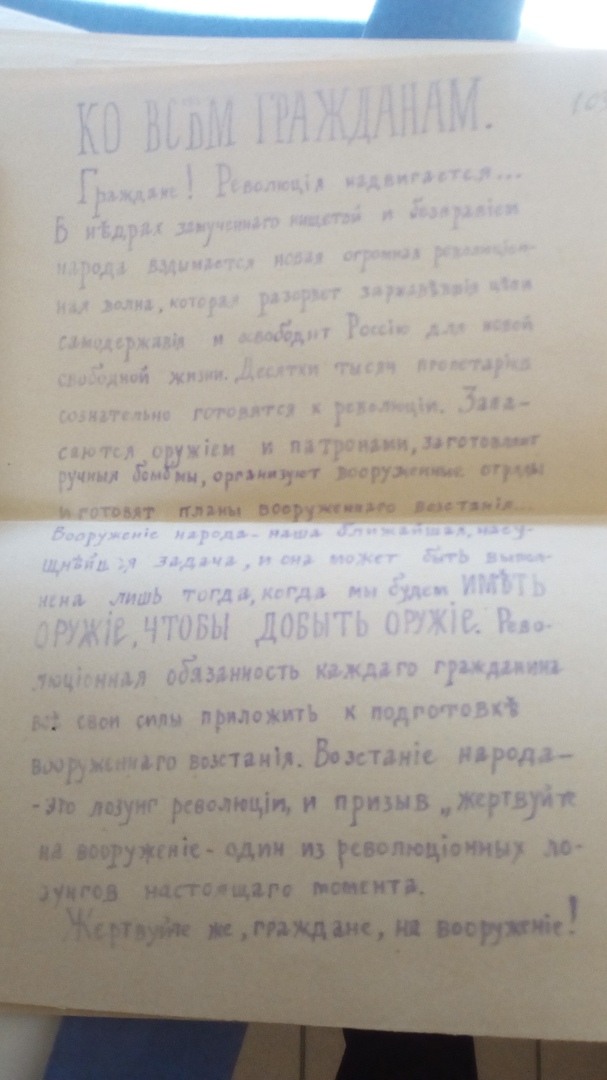 КО ВСѢМ ГРАЖДАНАМ.
Граждане! Революція надвигается...
В нѣдрах замученнаго нищетой и безправіем
народа вздымается новая огромная революціон-
ная волна, которая разорвет заржавѣвшія цѣпи
самодержавія и освободит Россію для новой
свободной жизни. Десятки тысяч пролетаріев
сознательно готовятся к революціи. Запа-
саются оружіем и патронами, заготовляют
ручныя бомбы, организуют вооруженные отряды
и готовят планы вооруженнаго возстанія...
Вооруженіе народа - наша ближайшая, насу-
щнѣйшая задача, и она может быть выпол-
нена лишь тогда, когда мы будем ИМѢТЬ
ОРУЖІЕ, ЧТОБЫ ДОБЫТЬ ОРУЖІЕ. Рево-
люціонная обязанность каждаго гражданина
всѣ свои силы приложить к подготовкѣ
вооруженнаго возстанія. Возстаніе народа-
-это лозунг революціи, и призыв „жертвуйте
на вооруженіе - один из революціонных ло-
зунгов настоящаго момента.
Жертвуйте же, граждане, на вооруженіе!